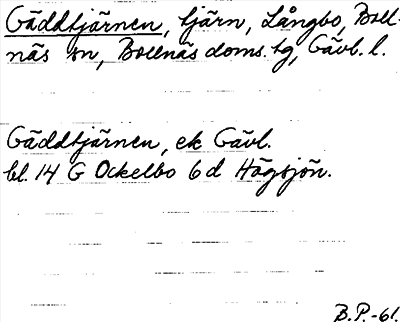 Gäddtjärnen, tjärn, Långbo, Boll-
näs sn, Bollnäs doms. tg, Gävl. l.
Gäddtjärnen, ek Gävl.
bl. 14 G Ockelbo 6 d Högsjön.
B.P.-61.